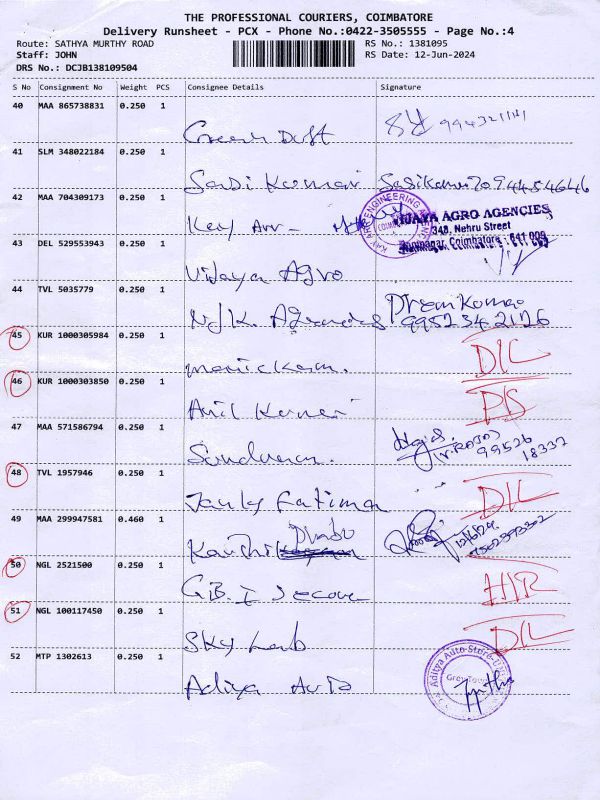 THE PROFESSIONAL COURIERS, COIMBATORE
Delivery Runsheet - PCX - Phone No.:0422-3505555 - Page No.:4
Route: SATHYA MURTHY ROAD
Staff: JOHN
DRS No.: DCJB138109504
RS No.: 1381095
RS Date: 12-Jun-2024
S No Consignment No Weight PCS Consignee Details Signature
40 MAA 865738831 0.250 1
Green Dust
41 SLM 348022184 0.250 1
Sasi Kumar
42 MAA 704309173 0.250 1
Key Arr -
VIJAYA AGRO AGENCIES
348, Nehru Street
Coimbatore - 641 009
43 DEL 529553943 0.250 1
Vijaya Agro
44 TVL 5035779 0.250 1
N/K. Agencies Prem Kumar
9952342126
45 KUR 1000305984 0.250 1
manickam. D/L
46 KUR 1000303850 0.250 1
Anil Kumar
47 MAA 571586794 0.250 1
Sundaram. 99526
18332
48 TVL 1957946 0.250 1
Fatima D/L
49 MAA 299947581 0.460 1
Prabu
Karthik
50 NGL 2521500 0.250 1
G.B. I Secure
51 NGL 100117450 0.250 1
Sky Lab D/L
52 MTP 1302613 0.250 1
Aditya Auto
Aditya Auto Store